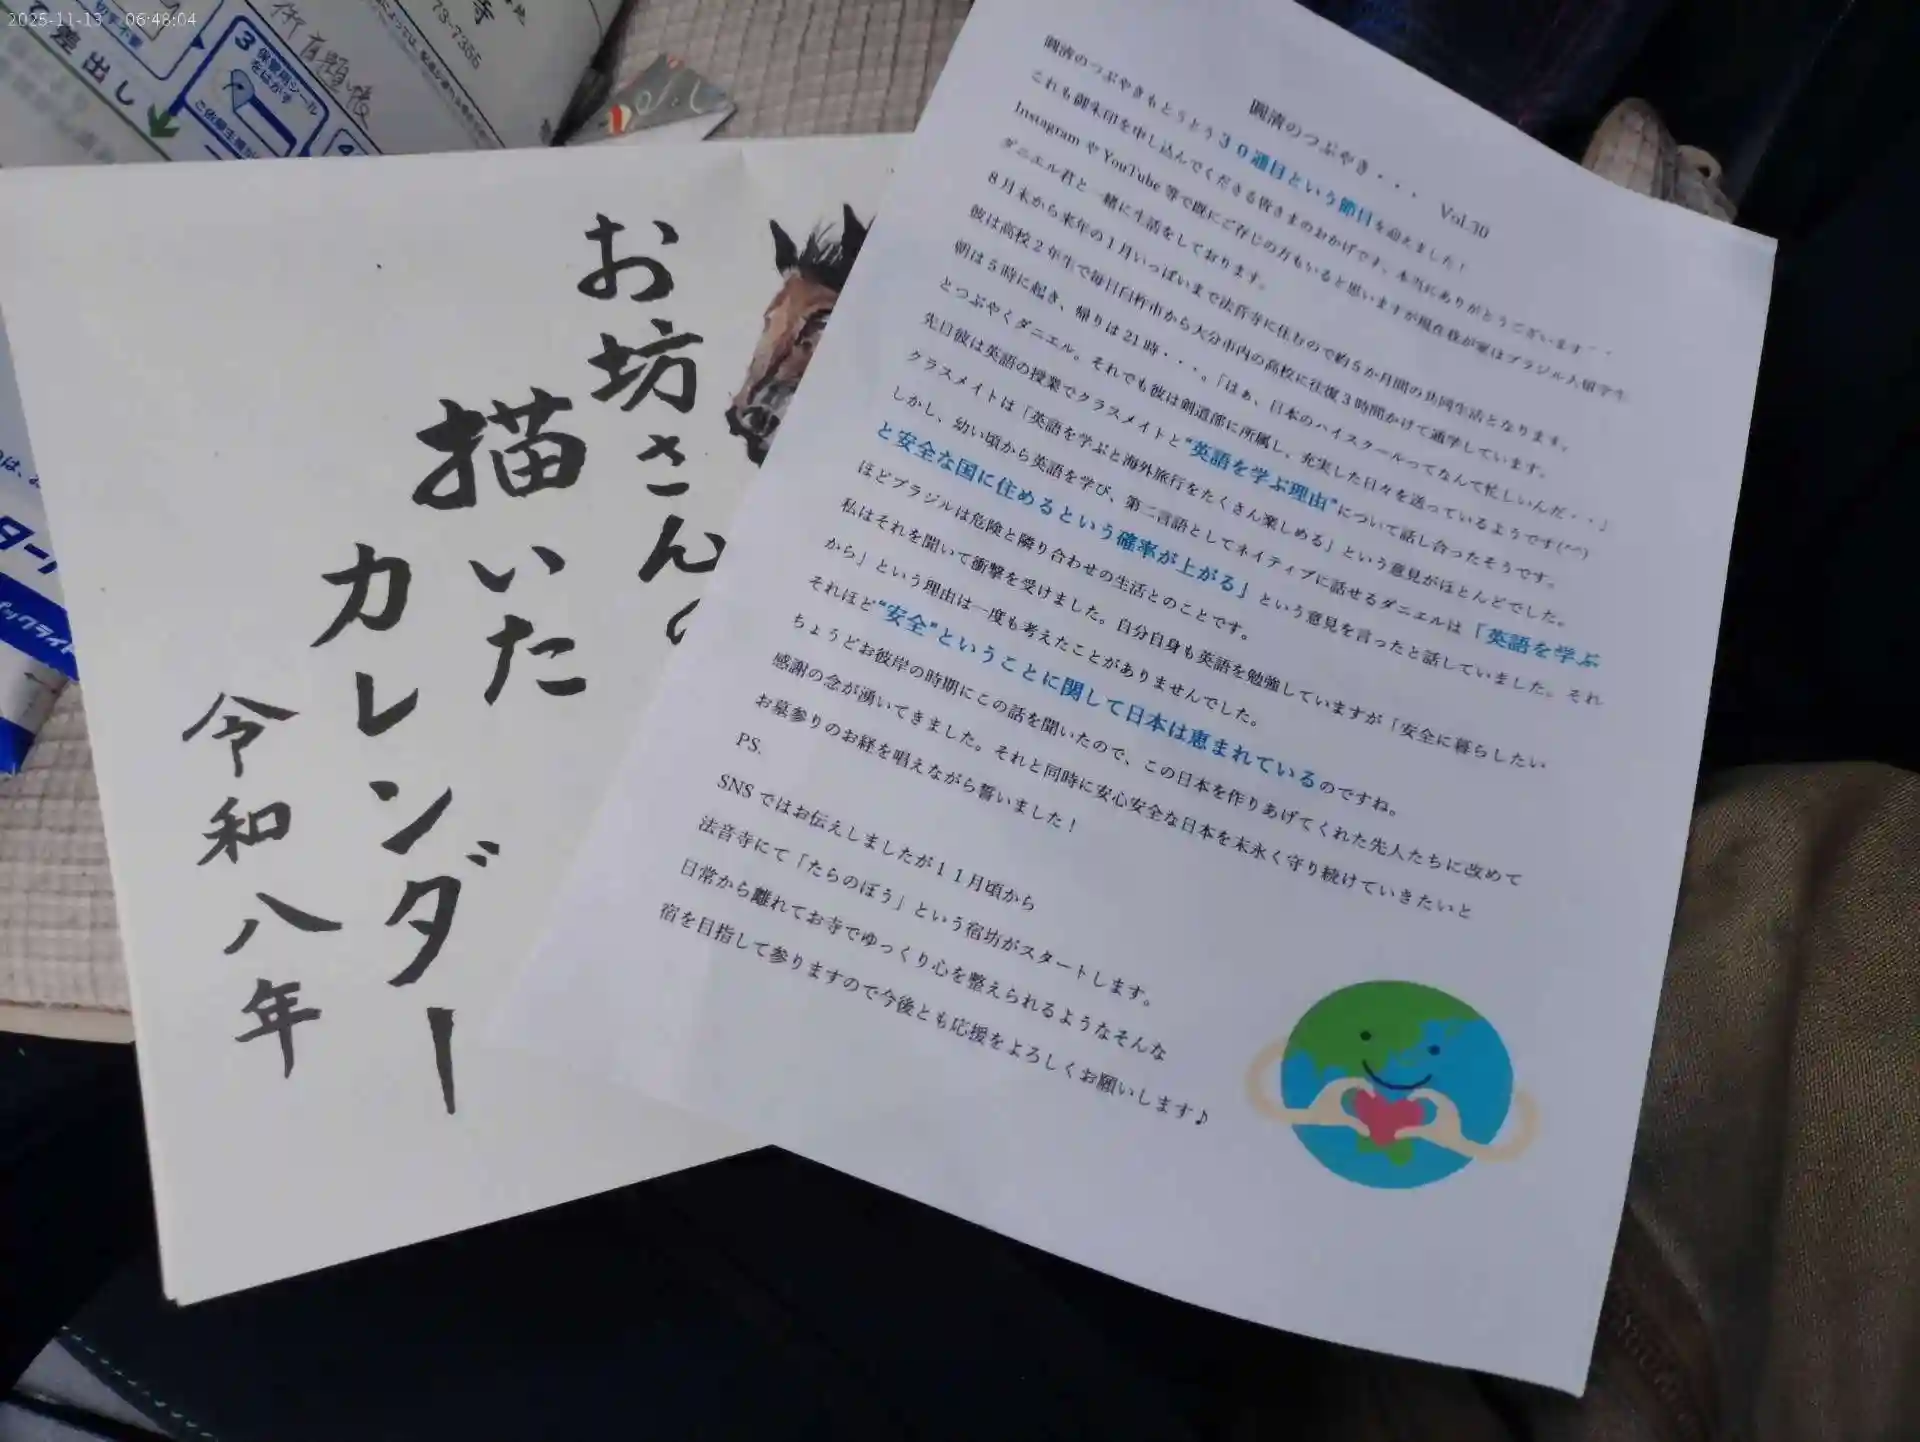 2025-11-13 06:48:04
差出し
3 保管用シール
をはがす
ご依頼主様
73-7355
寺
お坊さんの
描いた
カレンダー
令和八年
圓清のつぶやき・・・ Vol.30
圓清のつぶやきもとうとう30通目という節目を迎えました！
これも御朱印を申し込んでくださる皆さまのおかげです。本当にありがとうございます
InstagramやYouTube等で既にご存じの方もいると思いますが現在我が家はブラジル人留学生
ダニエル君と一緒に生活をしております。
8月末から来年の1月いっぱいまで法音寺に住むので約5か月間の共同生活となります。
彼は高校2年生で毎日臼杵市から大分市内の高校に往復3時間かけて通学しています。
朝は5時に起き、帰りは21時・・・。「はぁ、日本のハイスクールってなんて忙しいんだ・・」
とつぶやくダニエル。それでも彼は剣道部に所属し、充実した日々を送っているようです(^^)
先日彼は英語の授業でクラスメイトと“英語を学ぶ理由”について話し合ったそうです。
クラスメイトは「英語を学ぶと海外旅行をたくさん楽しめる」という意見がほとんどでした。
しかし、幼い頃から英語を学び、第二言語としてネイティブに話せるダニエルは「英語を学ぶ
と安全な国に住めるという確率が上がる」という意見を言ったと話していました。それ
ほどブラジルは危険と隣り合わせの生活とのことです。
私はそれを聞いて衝撃を受けました。自分自身も英語を勉強していますが「安全に暮らしたい
から」という理由は一度も考えたことがありませんでした。
それほど“安全”ということに関して日本は恵まれているのですね。
ちょうどお彼岸の時期にこの話を聞いたので、この日本を作りあげてくれた先人たちに改めて
感謝の念が湧いてきました。それと同時に安心安全な日本を末永く守り続けていきたいと
お墓参りのお経を唱えながら誓いました！
PS.
SNSではお伝えしましたが11月頃から
法音寺にて「たらのぼう」という宿坊がスタートします。
日常から離れてお寺でゆっくり心を整えられるようなそんな
宿を目指して参りますので今後とも応援をよろしくお願いします♪